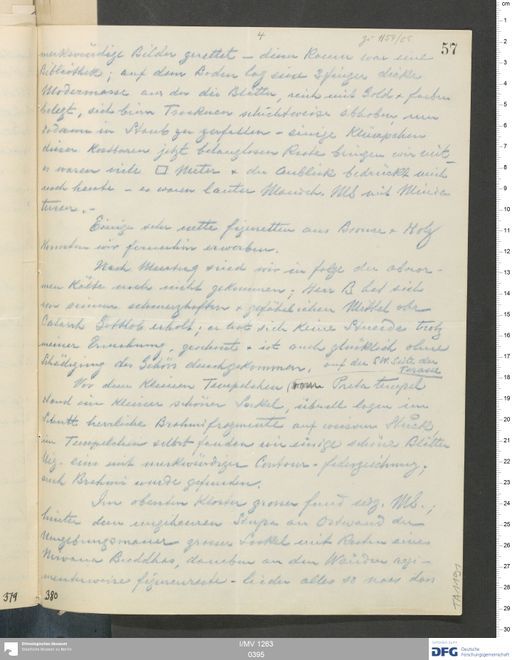 4
57
merkwürdige Bilder gerettet – dieser Raum war eine
Bibliothek; auf dem Boden lag eine 2 finger dicke
Modermasse aus der die Blätter, reich mit Gold + farben
belegt, sich beim Trocknen schichtweise abhoben, um
sodann in Staub zu zerfallen – einige Klümpchen
dieser kostbaren jetzt belanglosen Reste bringen wir mit –
es waren viele □ Meter + der Anblick bedrückt mich
noch heute – es waren lauter Manich. Mss mit Minia-
turen. –
Einige sehr nette figuretten aus Bronce + Holz
konnten wir fernerhin erwerben.
Nach Murtuq sind wir in folge der abnor-
men Kälte noch nicht gekommen; Herr B hat sich
von einem schmerzhaften + gefährlichen Mittel ohr
Catarrh Gottlob erholt; er hat sich keine Stunde trotz
meiner Ermahnung, geschont + ist auch glücklich ohne
Schädigung des Gehörs durchgekommen.
auf der SW. Seite der Terasse
Vor dem kleinen Tempelchen Preta tempel
stand ein kleiner schöner Sockel, überall lagen im
Schutt herrliche Brahmifragmente auf weissem Stuck
im Tempelchen selbst fanden wir einige schöne Blätter
Uig. eins mit merkwürdiger Contour-federzeichnung.
auch Brahmi wurde gefunden.
Im obersten Kloster grosser fund uig. Mss.;
hinter dem ungeheuren Stupa an Ostwand der
Umgebungsmauer grosser Sockel mit Resten eines
Nirvana Buddhas, daneben an den Wänden regi-
menterweise figurenreste – leider alles so nass dass
379
380
TA 1191
Ethnologisches Museum
Staatliche Museen zu Berlin
I/MV 1263
0395
DFG
Deutsche
Forschungsgemeinschaft